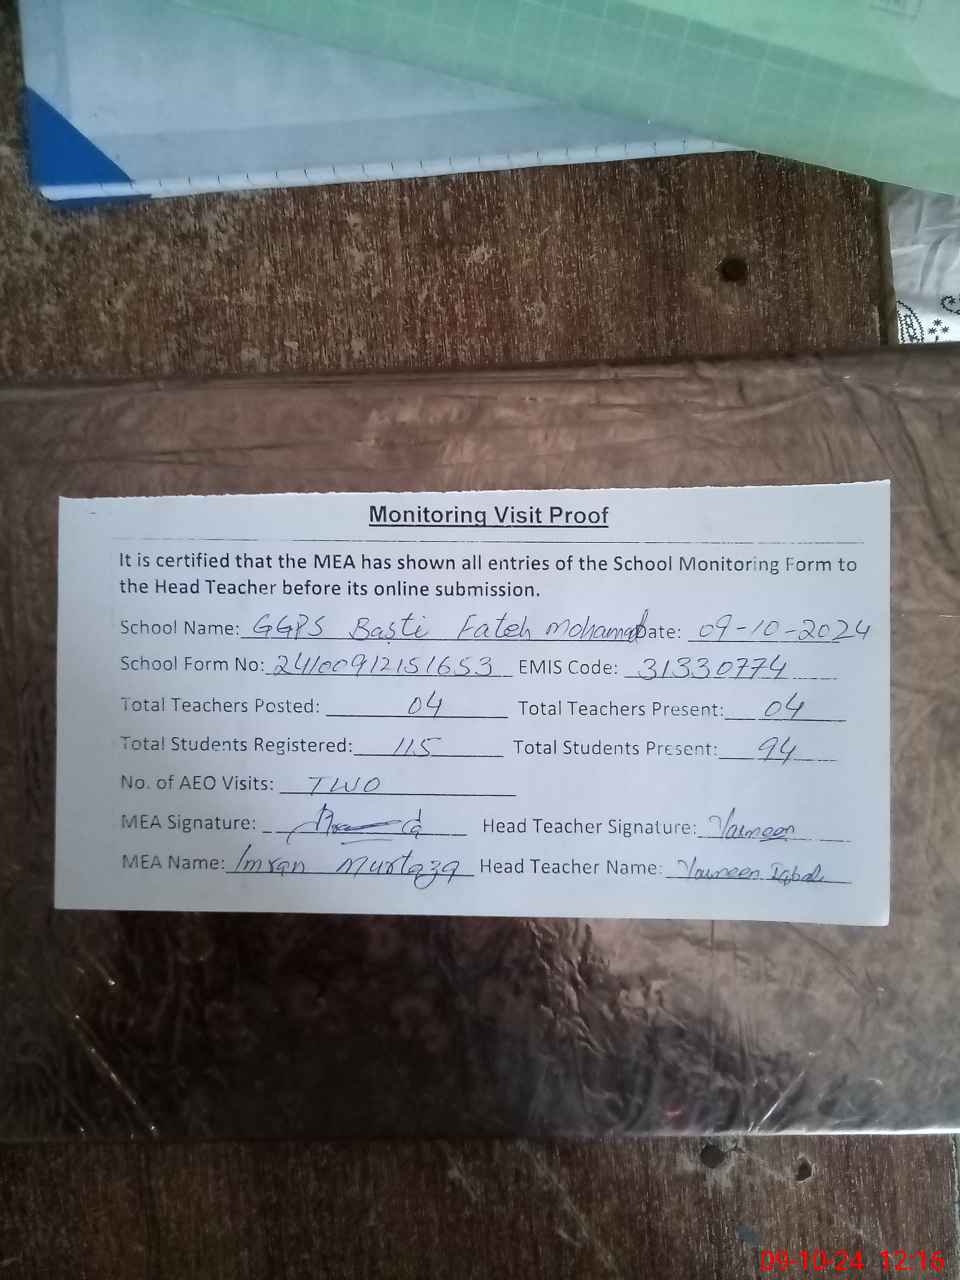 Monitoring Visit Proof
It is certified that the MEA has shown all entries of the School Monitoring Form to
the Head Teacher before its online submission.
School Name: GGPS Basti Fateh Mohammad Date: 09-10-2024
School Form No: 2410091215​1653 EMIS Code: 31330774
Total Teachers Posted: 04 Total Teachers Present: 04
Total Students Registered: 115 Total Students Present: 94
No. of AEO Visits: TWO
MEA Signature: Head Teacher Signature:
MEA Name: Imran Murtaza Head Teacher Name: Iqbal
09-10-24 12:16